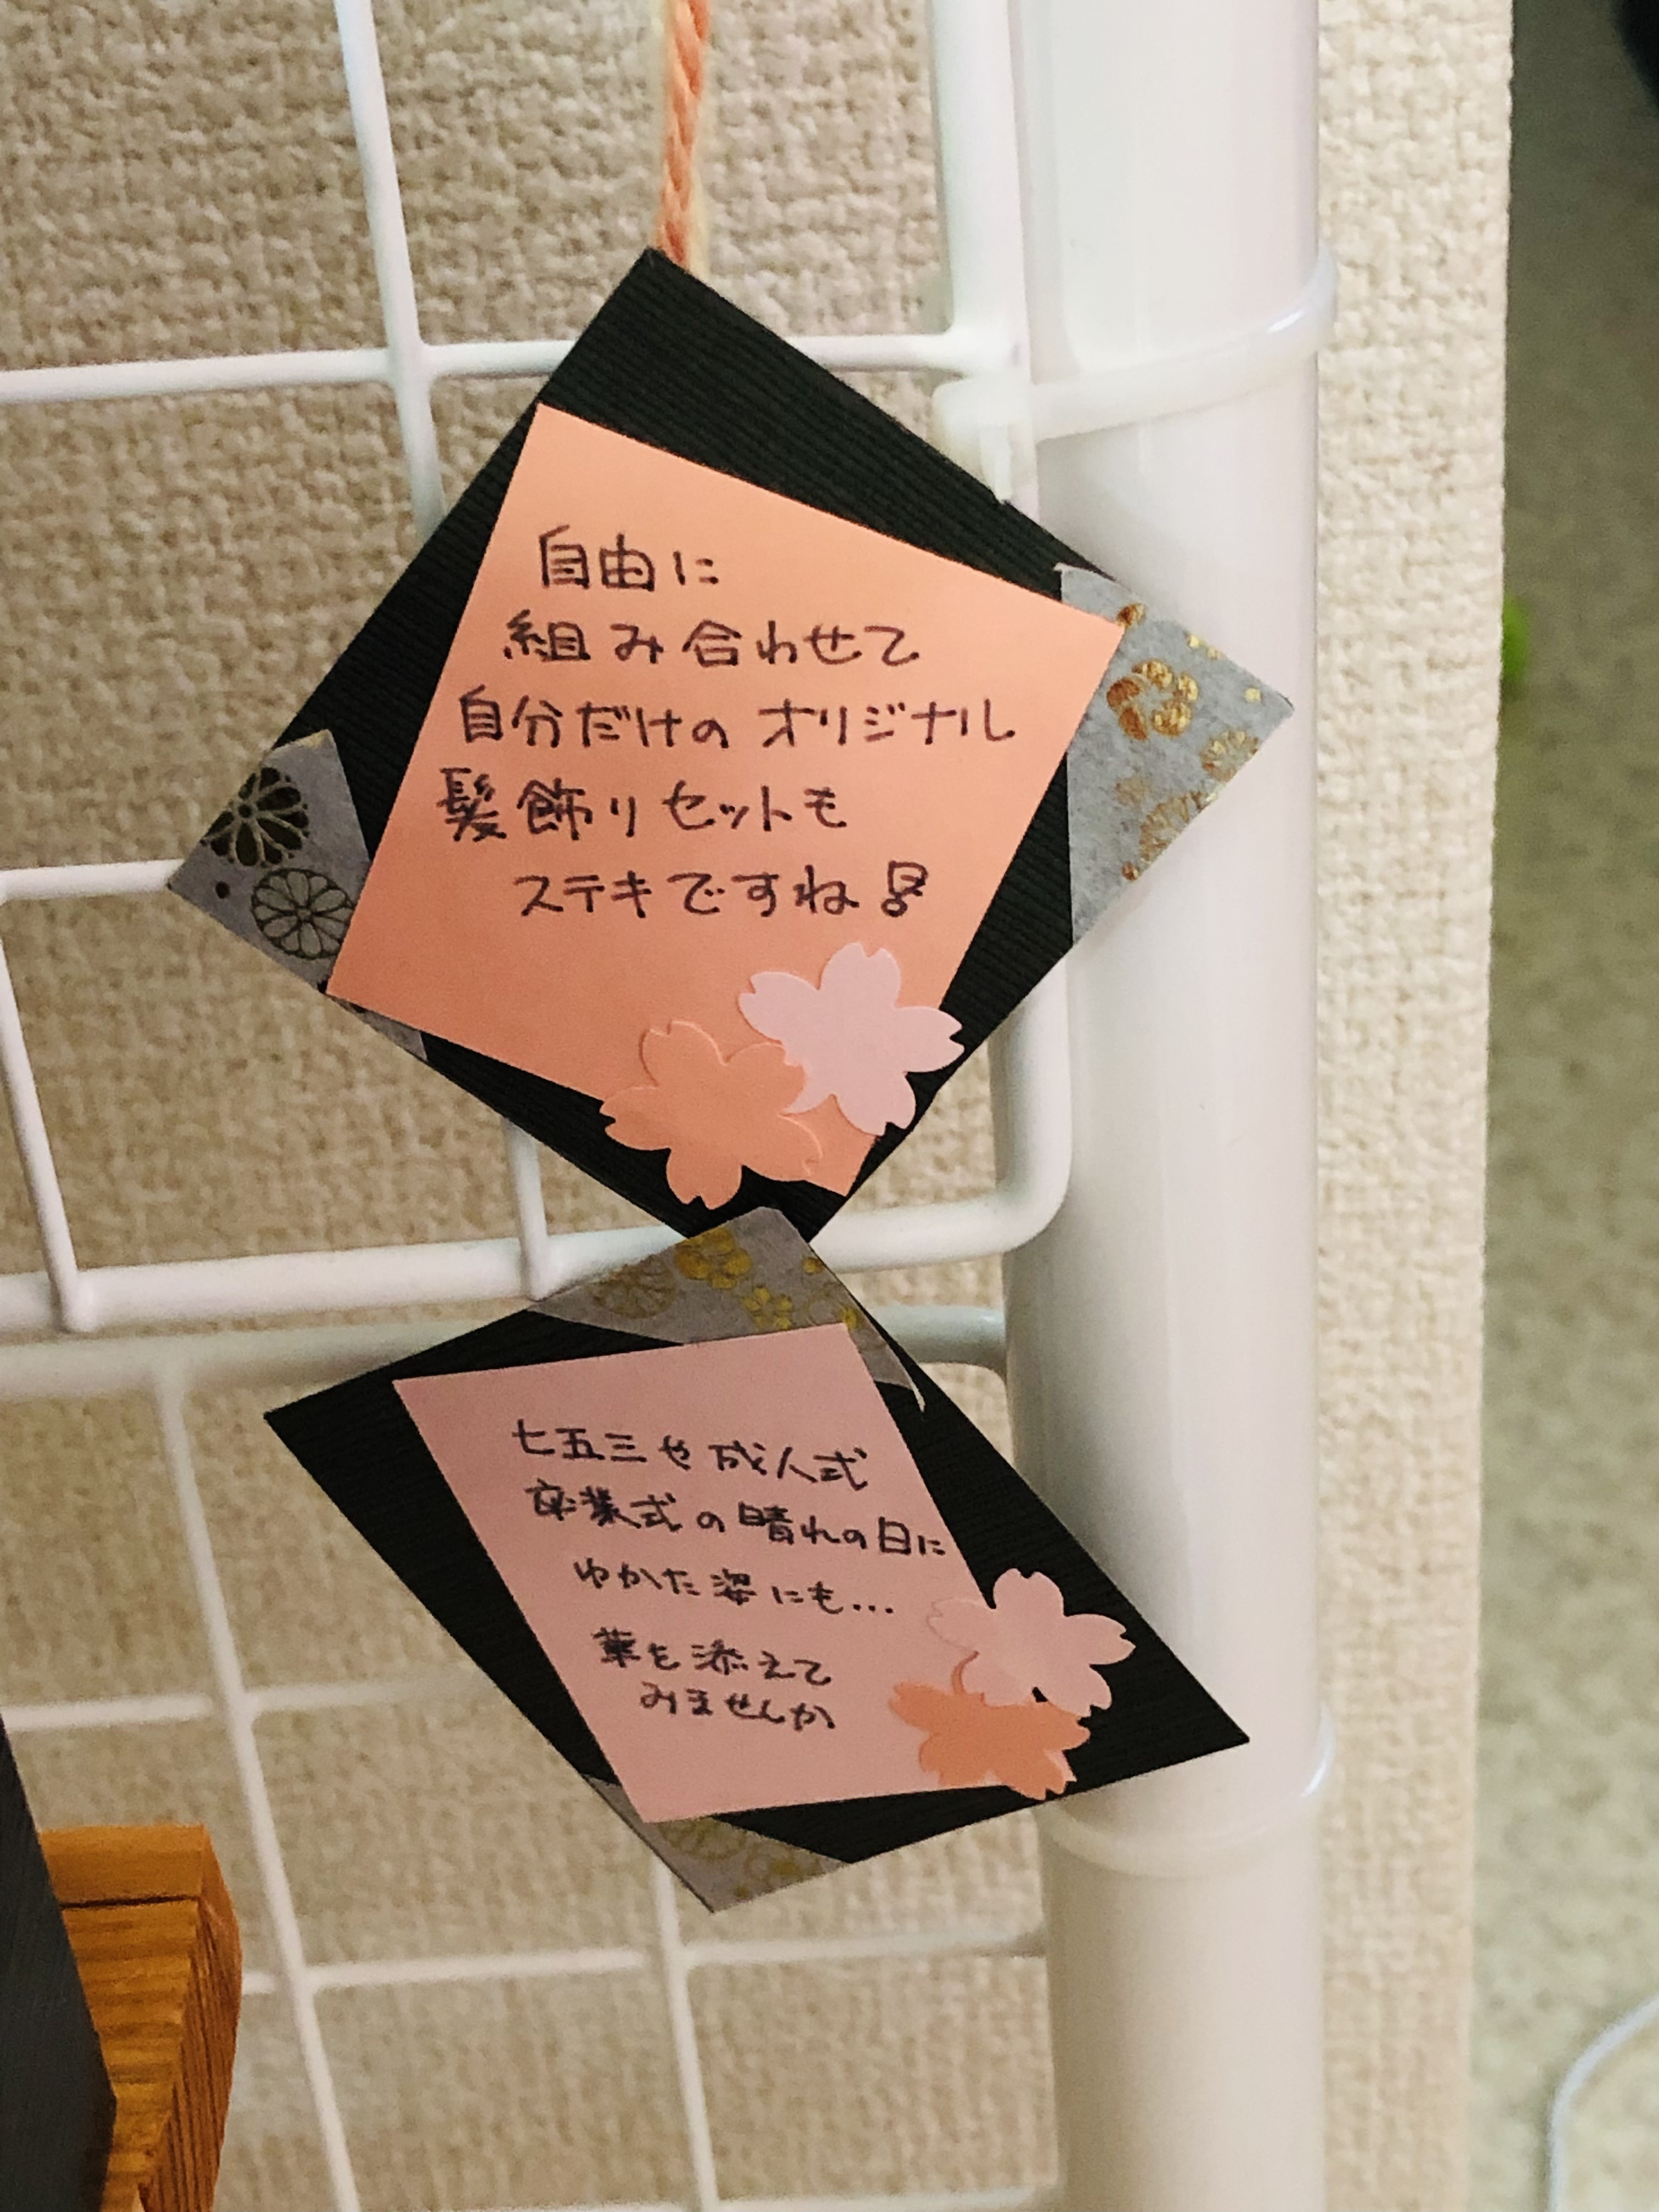 自由に
組み合わせて
自分だけの オリジナル
髪飾りセットも
ステキですね
七五三や成人式
卒業式の晴れの日に
ゆかた姿にも...
華を添えて
みませんか